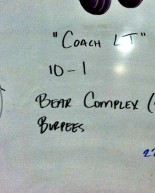 "COACH LT"
10-1
BEAR COMPLEX (
BURPEES